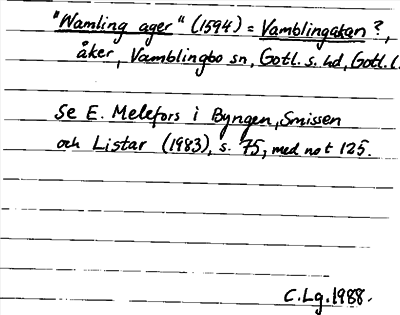 "Wamling ager" (1594) = Vamblingakan?,
åker, Vamblingbo sn, Gotl. s. hd, Gotl. l.
Se E. Melefors i Byngen, Smissen
och Listar (1983), s. 75, med not 125.
C.Lg. 1988.